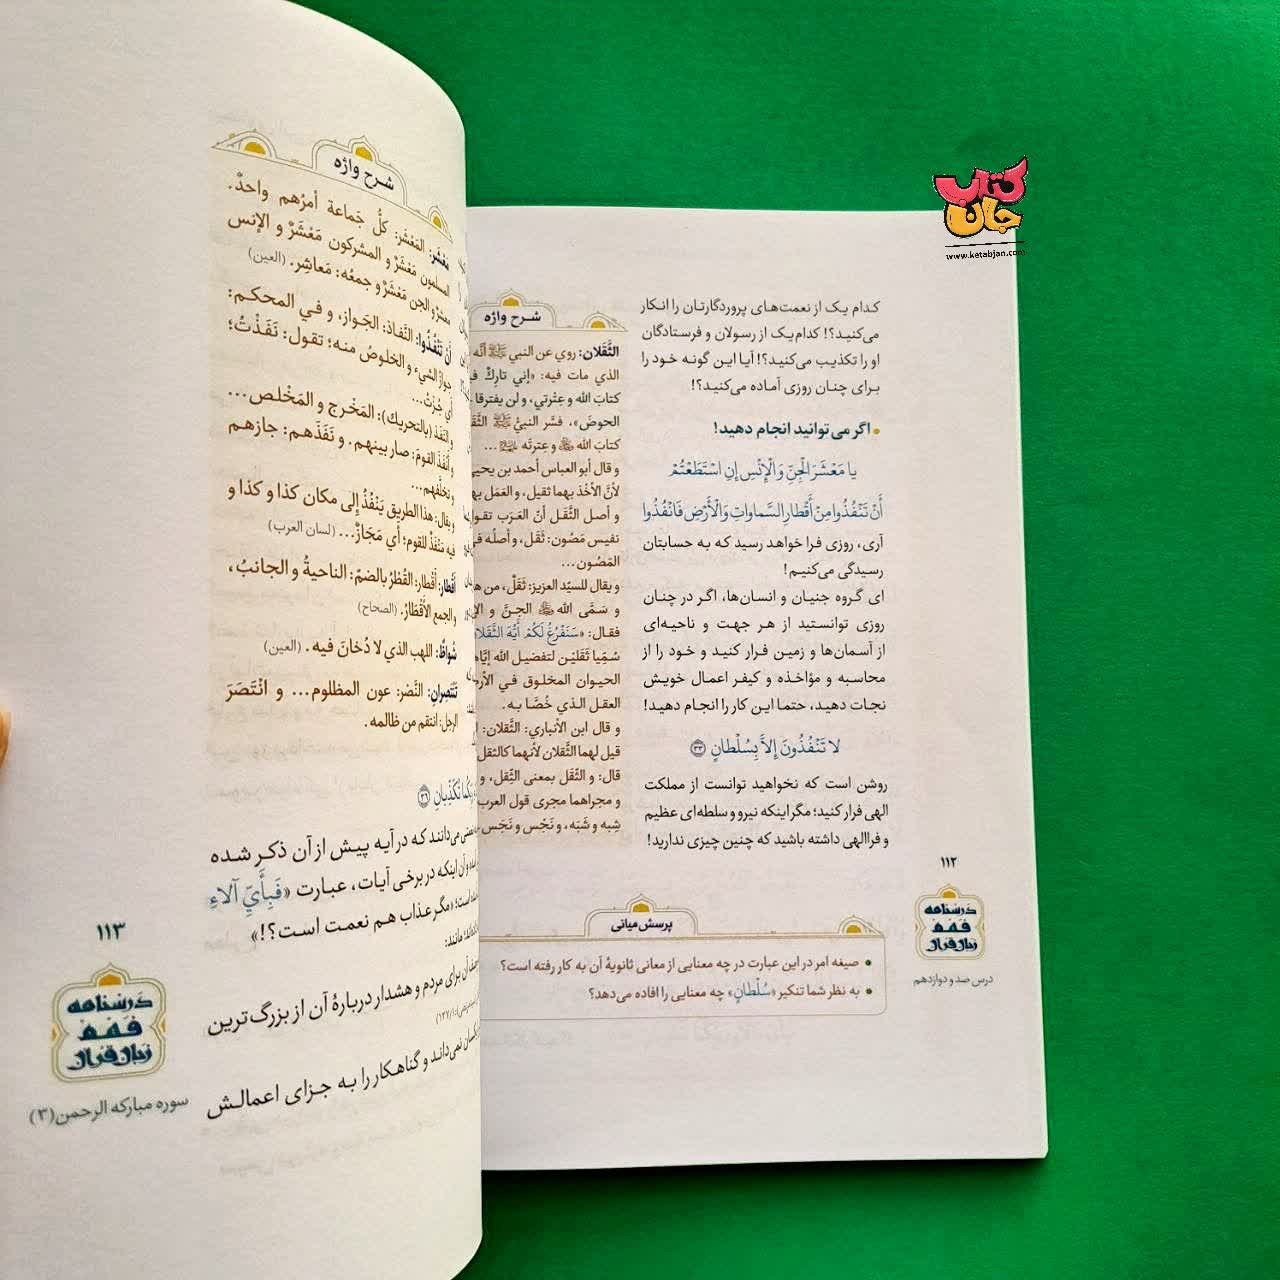 کتاب
جان
www.ketabjan.com
کدام یک از نعمت‌های پروردگارتان را انکار
می‌کنید؟! کدام‌یک از رسولان و فرستادگان
او را تکذیب می‌کنید؟! آیا این گونه خود را
برای چنان روزی آماده می‌کنید؟!
• اگر می‌توانید انجام دهید!
يا مَعْشَرَ الْجِنِّ وَ الْإِنْسِ إِنِ اسْتَطَعْتُمْ
أَنْ تَنْفُذُوا مِنْ أَقْطارِ السَّماواتِ وَ الْأَرْضِ فَانْفُذُوا
آری، روزی فرا خواهد رسید که به حسابتان
رسیدگی می‌کنیم!
ای گروه جنیان و انسان‌ها، اگر در چنان
روزی توانستید از هر جهت و ناحیه‌ای
از آسمان‌ها و زمین فرار کنید و خود را از
محاسبه و مؤاخذه و کیفر اعمال خویش
نجات دهید، حتما این کار را انجام دهید!
لا تَنْفُذُونَ إِلاَّ بِسُلْطانٍ ۳۳
روشن است که نخواهید توانست از مملکت
الهی فرار کنید؛ مگر اینکه نیرو و سلطه‌ای عظیم
و فراالهی داشته باشید که چنین چیزی ندارید!
شرح واژه
الثَّقَلان: روي عن النبي ﷺ أنّه
الذي مات فيه: «إني تارِكٌ
كتابَ الله و عِتْرتي، و لن يفترقا
الحوضَ»، فسَّر النبيُّ ﷺ
كتابَ الله ﷻ و عِترتَه ...
و قال أبو العباس أحمد بن يحيى
لأنّ الأخْذ بهما ثقيل، و العَمَل
و أصل الثَّقَل أنّ العَرَب
نفيس مَصُون: ثَقَل، و أصلُه
المَصُون...
و يقال للسيّد العزيز: ثَقَلٌ، من
و سَمَّى الله ﷻ الجنَّ و
فقال: «سَنَفْرُغُ لَكُمْ أَيُّهَ الثَّقَلانِ
سُمِّيا ثَقَلَيْن لتفضيل الله
الحيوان المخلوق في
العقل الذي خُصّا به.
و قال ابن الأنباري: الثَّقَلان:
قيل لهما الثَّقلان لأنهما كالثقل
قال: و الثَّقَل بمعنى الثِّقل، و
و مجراهما مجرى قول العرب
شِبه و شَبَه، و نَجْس و نَجَس
پرسش میانی
• صیغه امر در این عبارت در چه معنایی از معانی ثانویۀ آن به کار رفته است؟
• به نظر شما تنکیر «سُلْطانٍ» چه معنایی را افاده می‌دهد؟
۱۱۲
درسنامه
فهم
زبان قرآن
درس صد و دوازدهم
شرح واژه
مَعْشَر: المَعْشَر: كلُّ جَماعة أمرُهم واحدٌ.
المسلمون مَعْشَرٌ و المشركون مَعْشَرٌ و الإنس
مَعشَرٌ و الجن مَعْشَرٌ و جمعُه: مَعاشِر. (العين)
أنْ تَنْفُذُوا: النَّفاذ: الجَواز، و في المحكم:
جوازُ الشيء و الخلوصُ منه؛ تقول: نَفَذْتُ؛
أي جُزْتُ...
و النَفَذ (بالتحريك): المَخْرج و المَخْلص...
و أنْفَذَ القومَ: صار بينهم. و نَفَذَهم: جازهم
و تخلَّفهم...
و يقال: هذا الطريق يَنْفُذُ إلى مكان كذا و كذا و
فيه مَنْفَذٌ للقوم؛ أي مَجَازٌ... (لسان العرب)
أقْطار: أقْطار: القُطْرُ بالضمّ: الناحيةُ و الجانبُ،
و الجمع الأَقْطَارُ. (الصحاح)
شُواظٌ: اللهب الذي لا دُخانَ فيه. (العين)
تَنْتَصِرانِ: النَّصْر: عون المظلوم... و انْتَصَرَ
الرجل: انتقم من ظالمه.
تُكَذِّبانِ ۳۶
می‌دانند که در آیه پیش از آن ذکر شده
و آن اینکه در برخی آیات، عبارت «فَبِأَيِّ آلاءِ
است؛ «مگر عذاب هم نعمت است؟!»
مانند:
آن برای مردم و هشدار دربارۀ آن از بزرگ‌ترین
نمی‌داند و گناهکار را به جزای اعمالش
۱۱۳
درسنامه
فهم
زبان قرآن
سوره مبارکه الرحمن (۳)